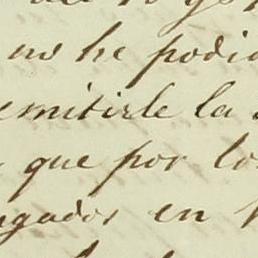 no he podid
emitirle la
que por lo
gados en